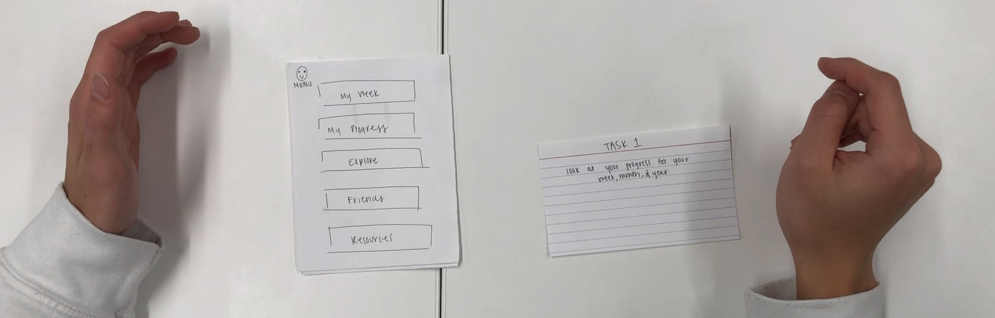 MENU
My Week
My Progress
Explore
Friends
Resources
TASK 1
look at your progress for your
week, month, & year